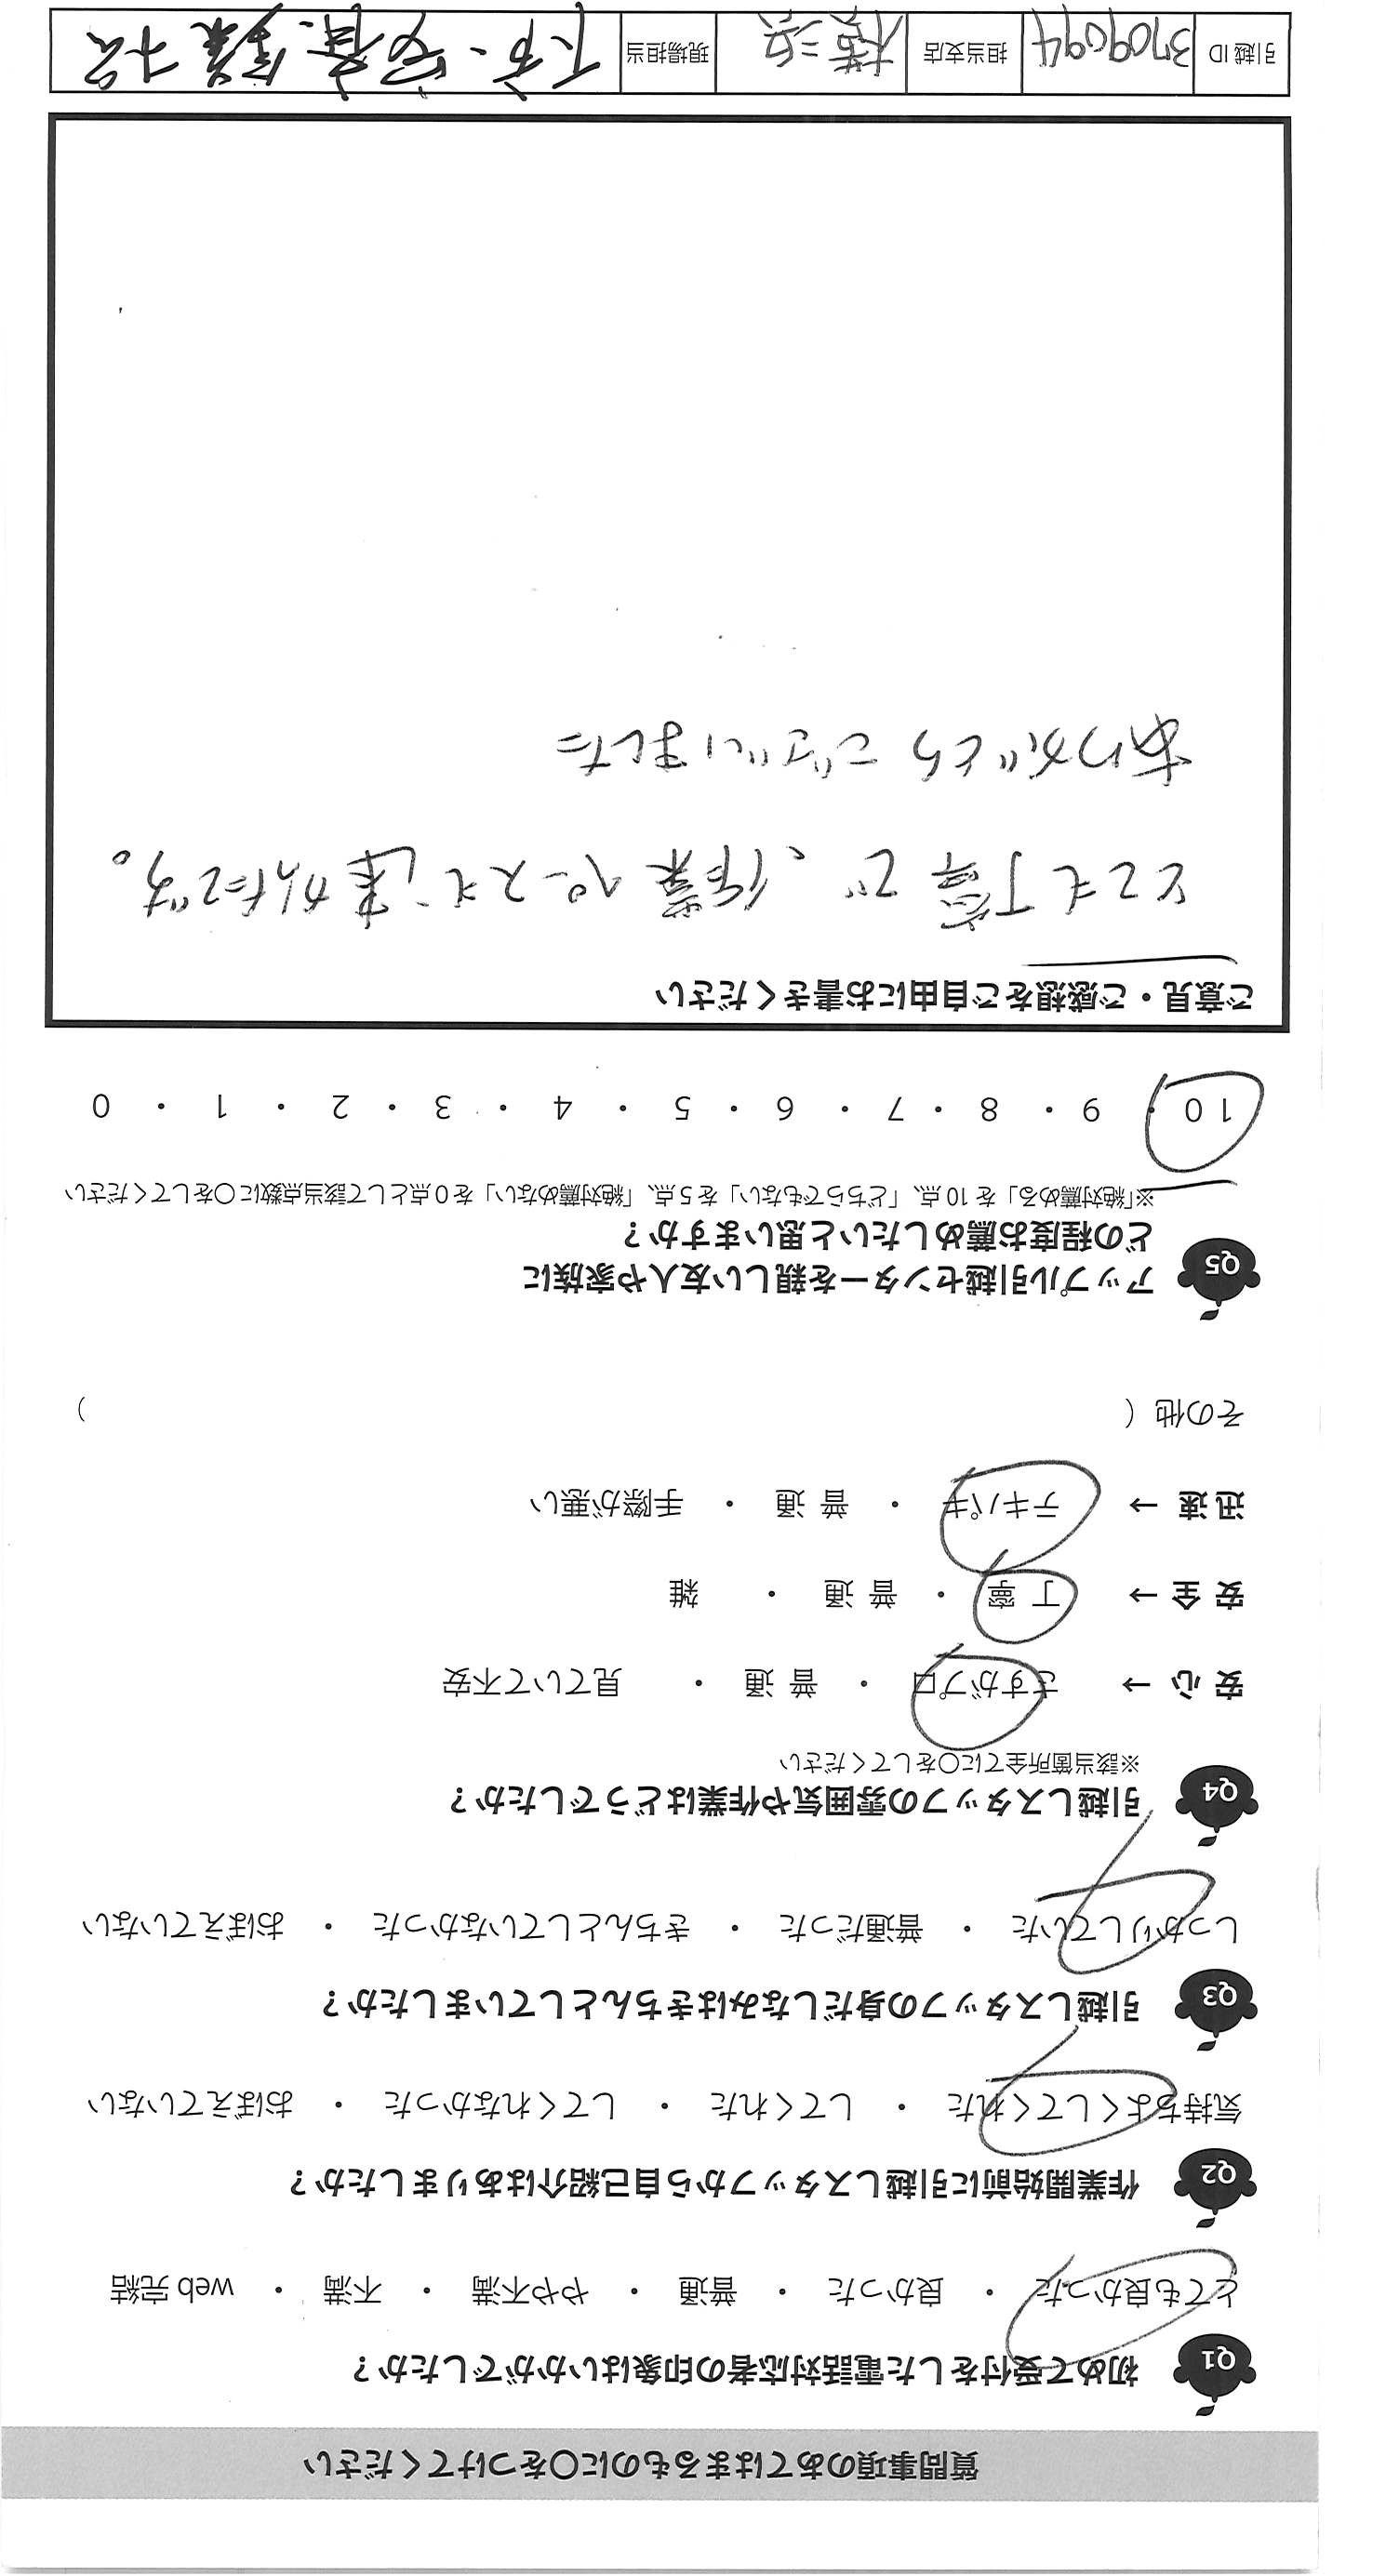 質問事項のあてはまるものに○をつけてください
Q1 初めて受付をした電話対応者の印象はいかがでしたか？
とても良かった ・ 良かった ・ 普通 ・ やや不満 ・ 不満 ・ web 完結
Q2 作業開始前に引越しスタッフから自己紹介はありましたか？
気持ちよくしてくれた ・ してくれた ・ してくれなかった ・ おぼえていない
Q3 引越しスタッフの身だしなみはきちんとしていましたか？
しっかりしていた ・ 普通だった ・ きちんとしていなかった ・ おぼえていない
Q4 引越しスタッフの雰囲気や作業はどうでしたか？
※該当箇所全てに○をしてください
安 心 → さすがプロ ・ 普 通 ・ 見ていて不安
安 全 → 丁 寧 ・ 普 通 ・ 雑
迅 速 → テキパキ ・ 普 通 ・ 手際が悪い
その他（ ）
Q5 アップル引越センターを親しい友人や家族に
どの程度お薦めしたいと思いますか？
※「絶対薦める」を 10 点、「どちらでもない」を 5 点、「絶対薦めない」を 0 点として該当点数に○をしてください
10 ・ 9 ・ 8 ・ 7 ・ 6 ・ 5 ・ 4 ・ 3 ・ 2 ・ 1 ・ 0
ご意見・ご感想をご自由にお書きください
とても丁寧で、作業ペースも速かったです。
ありがとうございました
引越 ID 3709094 担当支店 横浜 現場担当